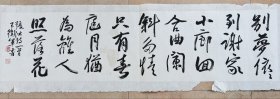 别梦依
依到谢家
小廊回
合曲阑
斜多情
只有春
庭月犹
为离人
照落花